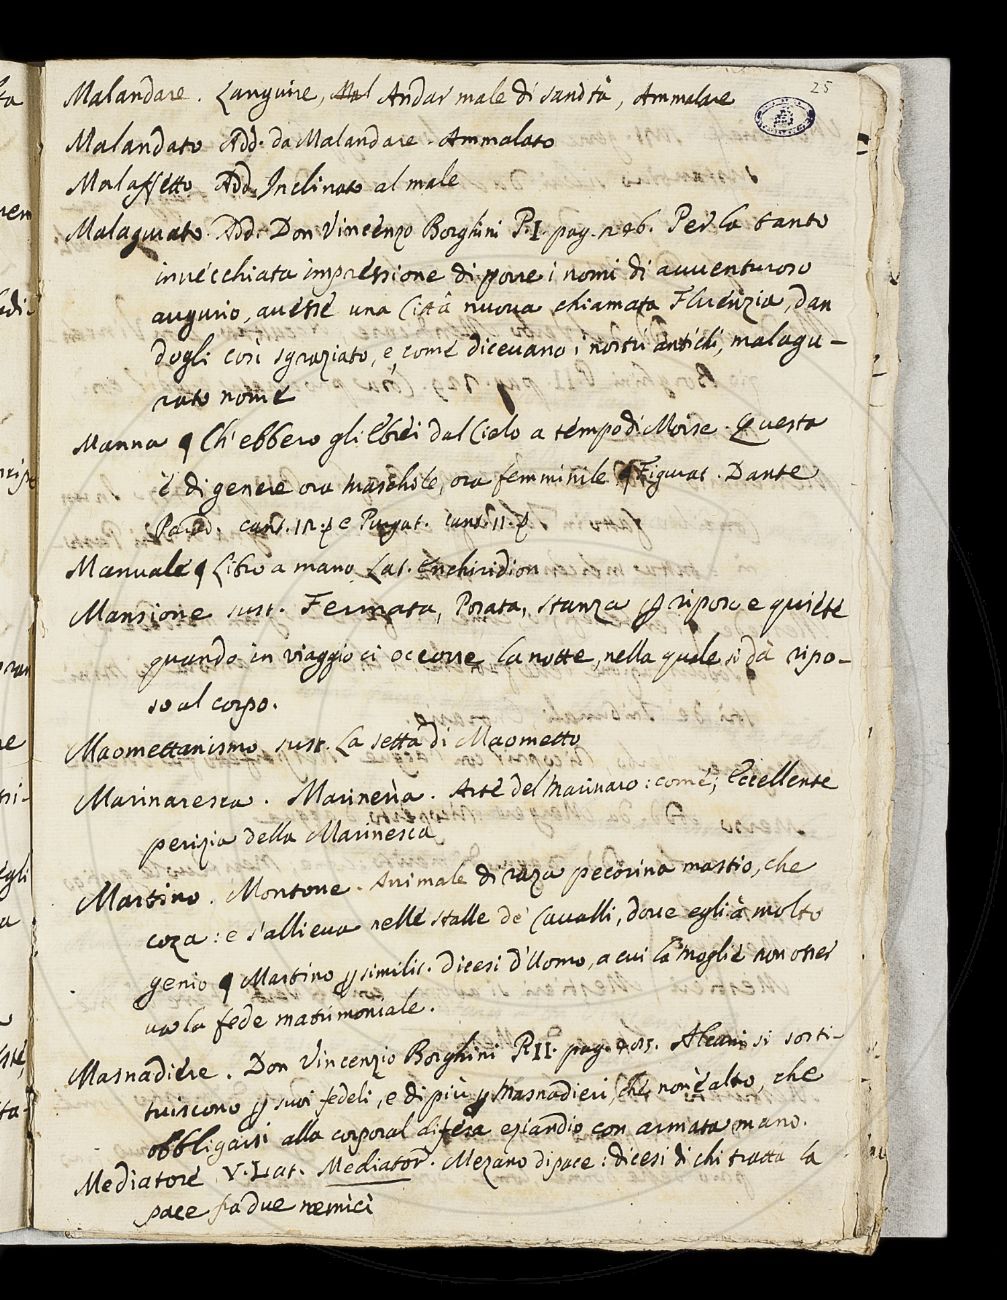 25
Malandare. Languire, Mal Andar male di sanità, Ammalare
Malandato Add. da Malandare. Ammalato
Malaffetto Add. Inclinato al male
Malagurato Add. Don Vincenzo Borghini P. I. pag. Per la tanto
invecchiata impressione di porre i nomi di avventuroso
augurio, avesse una Città nuova chiamata Fluenzia, dan
dogli così sgraziato, e come dicevano i nostri antichi, malagu-
rato nome
Manna ¶ Ch'ebbero gli Ebrei dal Cielo a tempo di Moise. Questa
è di genere ora maschile, ora femminile ¶ Figurat. Dante
Parad. cant. 12. e Purgat. cant. 11.
Manuale ¶ Libro a mano Lat. Enchiridion
Mansione sust. Fermata, Posata, Stanza ꝑ riposo e quiete
quando in viaggio ci occorre la notte, nella quale si dà ripo-
so al corpo.
Maomettanismo sust. La setta di Maometto
Marinaresca. Marineria. Arte del Marinaro: come; Eccellente
perizia della Marinesca
Martino. Montone. Animale di raza pecorina mastio, che
coza: e s'allieva nelle stalle de' Cavalli, dove egli à molto
genio ¶ Martino ꝑ similit. dicesi d'Uomo, a cui la moglie non osser
va la fede matrimoniale.
Masnadiere. Don Vincenzio Borghini P. II. pag. Alcuni si sorti-
tuiscono ꝑ suoi fedeli, e di più ꝑ Masnadieri, che non è altro, che
obbligarsi alla corporal difesa eziandio con armata mano.
Mediatore V. Lat. Mediator. Mezano di pace: dicesi di chi tratta la
pace fra due nemici